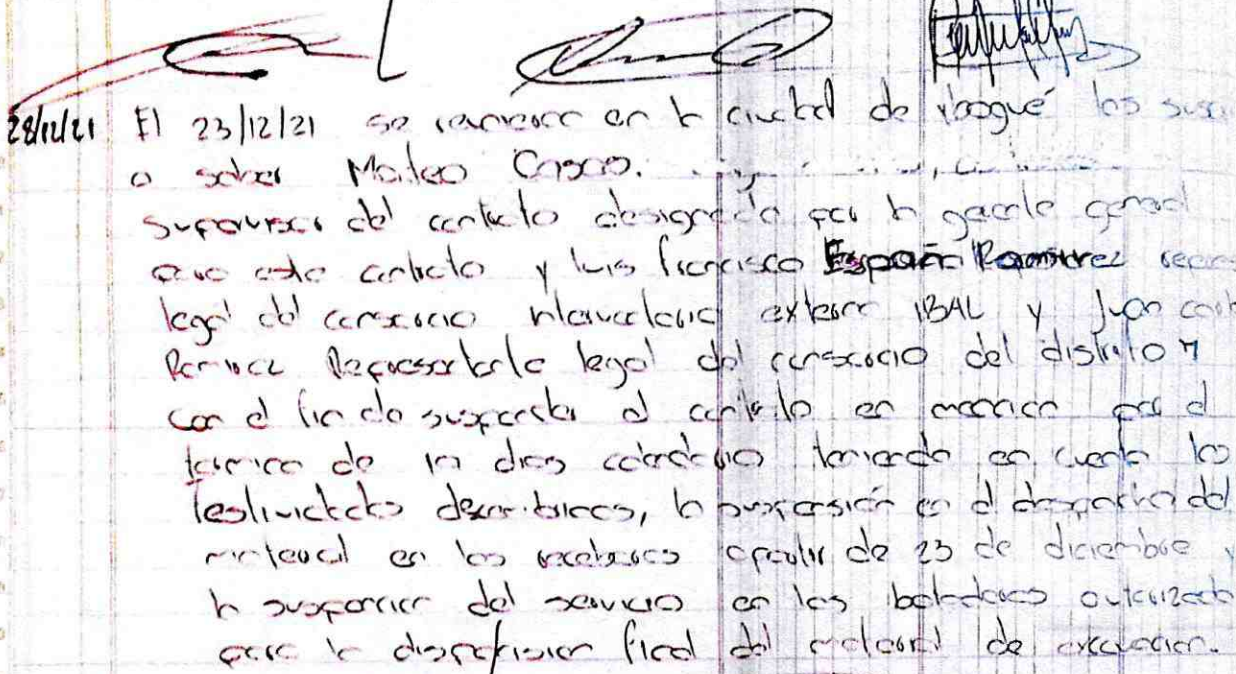 28/12/21 El 23/12/21 se reunieron en la ciudad de Ibagué los susc
a saber Mateo y
supervisor del contrato designado por la gerente general
para este contrato y luis francisco España Ramirez repres
legal del consorcio interventoria exterior IBAL y Juan carl
Ramirez Representante legal del consorcio del distrito 7
con el fin de suspender el contrato en mencion por el
termino de 10 dias calendario teniendo en cuenta las
festividades decembrinas, la suspensión en el despacho del
material en las receberas apartir de 23 de diciembre y
la suspension del servicio en los botaderos autorizado
para la disposision final del material de excavacion.